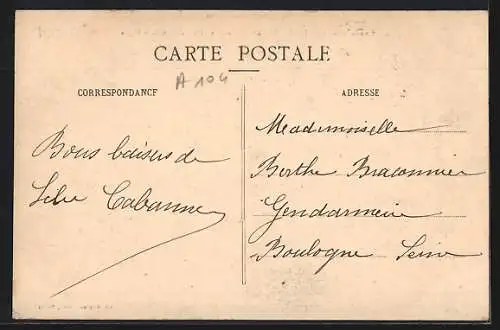 CARTE POSTALE
A 104
CORRESPONDANCE
ADRESSE
Bons baisers de
Cabanne
Mademoiselle
Berthe Braconnier
Gendarmerie
Boulogne Seine